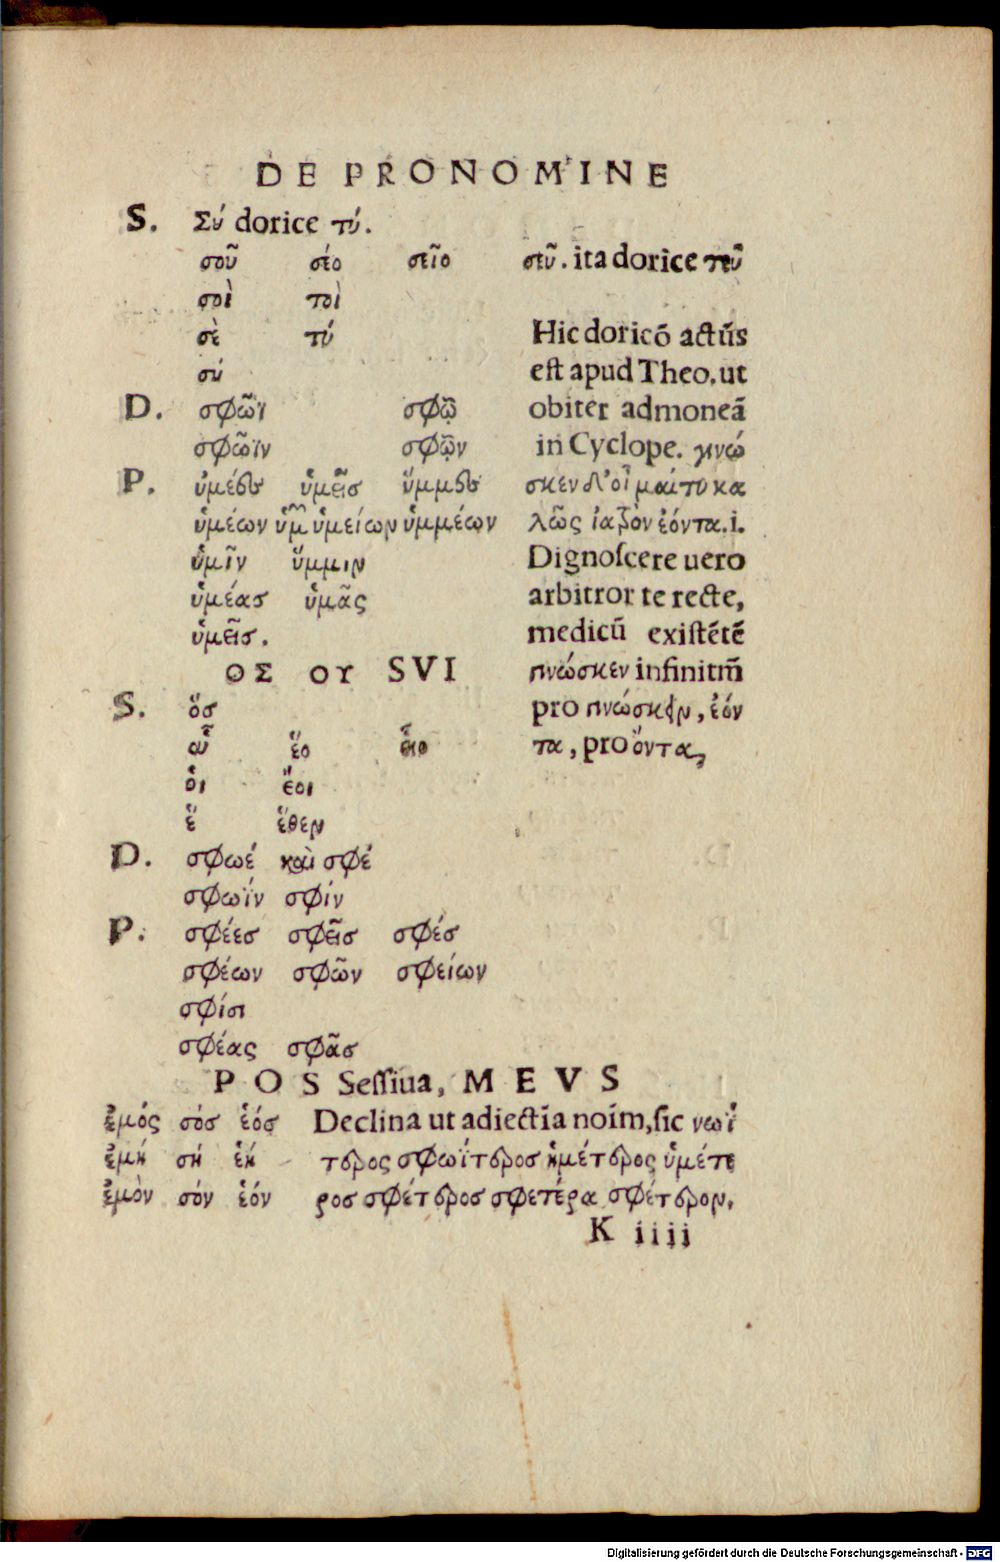 DE PRONOMINE
S. Σύ dorice τύ.
σοῦ σέο σεῖο σεῦ. ita dorice τεῦ
σοὶ τοὶ
σὲ τύ Hic doricō actūs
σύ est apud Theo. ut
D. σφῶϊ σφῷ obiter admoneā
σφῶϊν σφῷν in Cyclope. γινώ
P. ὑμέες ὑμεῖσ ὕμμες σκεν δ'οἶ μαί τυ κα
ὑμέων ὑμείων ὑμμέων λῶς ἰαρὸν ἐόντα. i.
ὑμῖν ὕμμιν Dignoſcere uero
ὑμέασ ὑμᾶς arbitror te recte,
ὑμεῖσ. medicū exiſtētē
ΟΣ ΟΥ SVI γινώσκεν infinitm̄
S. ὅσ pro γινώσκειν, ἐόν
οὗ ἕο εἷο τα, pro ὄντα,
οἱ ἕοι
ἕ ἕθεν
D. σφωέ καὶ σφέ
σφωΐν σφίν
P. σφέεσ σφεῖσ σφέσ
σφέων σφῶν σφείων
σφίσι
σφέας σφᾶσ
POS Seſſiua, MEVS
ἐμός σόσ ἑόσ Declina ut adiectīa noīm, ſic νωΐ
ἐμή σή ἑή τερος σφωΐτεροσ ἡμέτερος ὑμέτε
ἐμὸν σόν ἑόν ροσ σφέτεροσ σφετέρα σφέτερον.
K iiii
Digitalisierung gefördert durch die Deutsche Forschungsgemeinschaft - DFG